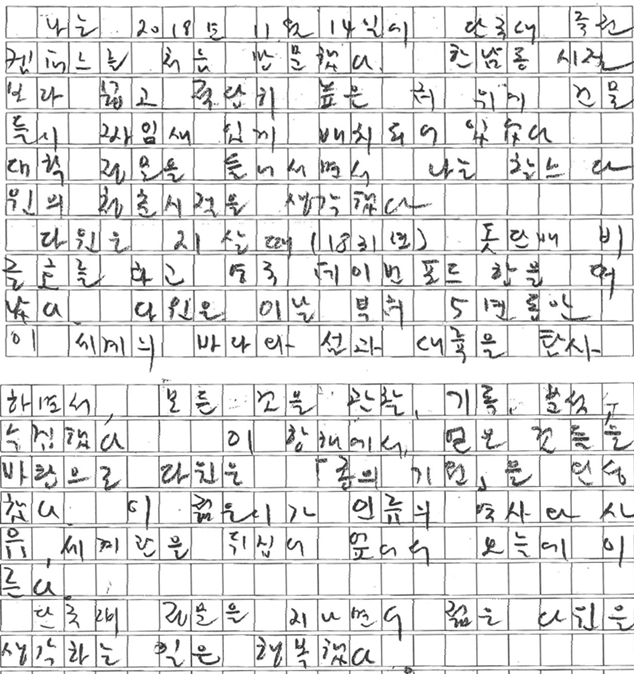 나는 2018년 11월 14일에 단국대 죽전
캠퍼스를 처음 방문했다. 한남동 시절
보다 넓고 쾌적한 높은 터 위에 건물
들이 짜임새 있게 배치되어 있었다
대학 정문을 들어서면서 나는 찰스 다
윈의 청춘시절을 생각했다
다윈은 21살 때 (1831년) 돛단배 비
글호를 타고 영국 데이번포트 항을 떠
났다. 다윈은 이날 부터 5년동안
이 세계의 바다와 섬과 대륙을 탐사
하면서, 모든 것을 관찰, 기록, 분석,
수집했다 이 항해에서, 얻은 것들을
바탕으로 다윈은 「종의 기원」을 완성
했다. 이 젊은이가 인류의 역사와 사
유, 세계관을 뒤집어 엎어서 오늘에 이
른다.
단국대 정문을 지나면서 젊은 다윈을
생각하는 일은 행복했다